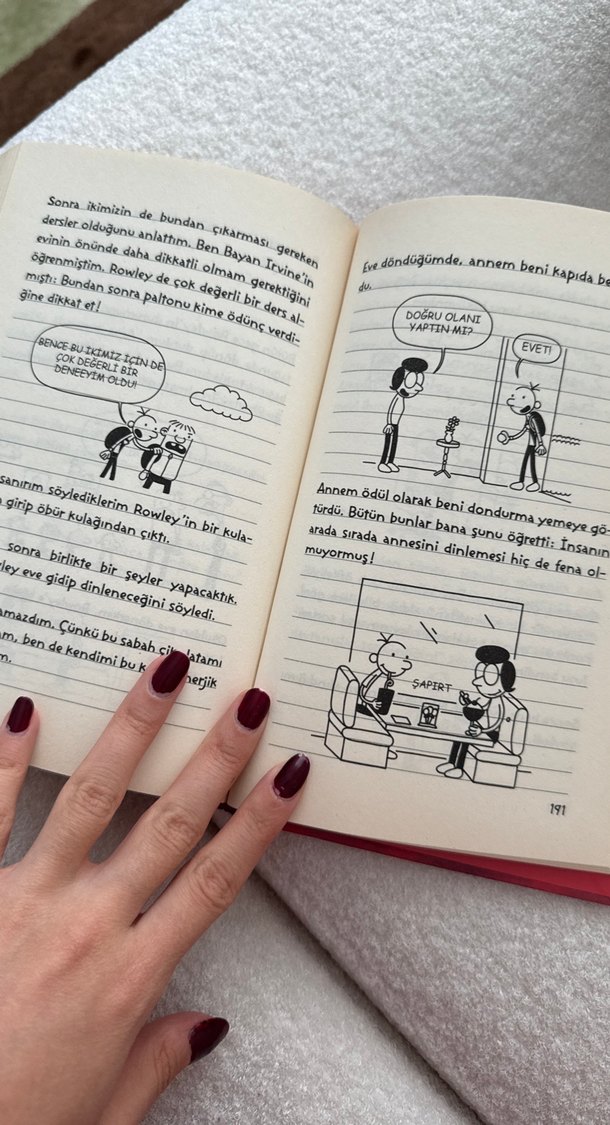 Sonra ikimizin de bundan çıkarması gereken
dersler olduğunu anlattım. Ben Bayan Irvine'in
evinin önünde daha dikkatli olmam gerektiğini
öğrenmiştim. Rowley de çok değerli bir ders al-
mıştı: Bundan sonra paltonu kime ödünç verdi-
ğine dikkat et!
BENCE BU İKİMİZ İÇİN DE
ÇOK DEĞERLİ BİR
DENEEYİM OLDU!
sanırım söylediklerim Rowley'in bir kula-
girip öbür kulağından çıktı.
sonra birlikte bir şeyler yapacaktık.
eve gidip dinleneceğini söyledi.
Çünkü bu sabah
ben de kendimi bu
Eve döndüğümde, annem beni kapıda
du.
DOĞRU OLANI
YAPTIN MI?
EVET!
Annem ödül olarak beni dondurma yemeye gö-
türdü. Bütün bunlar bana şunu öğretti: İnsanın
arada sırada annesini dinlemesi hiç de fena ol-
muyormuş!
ŞAPIRT
191